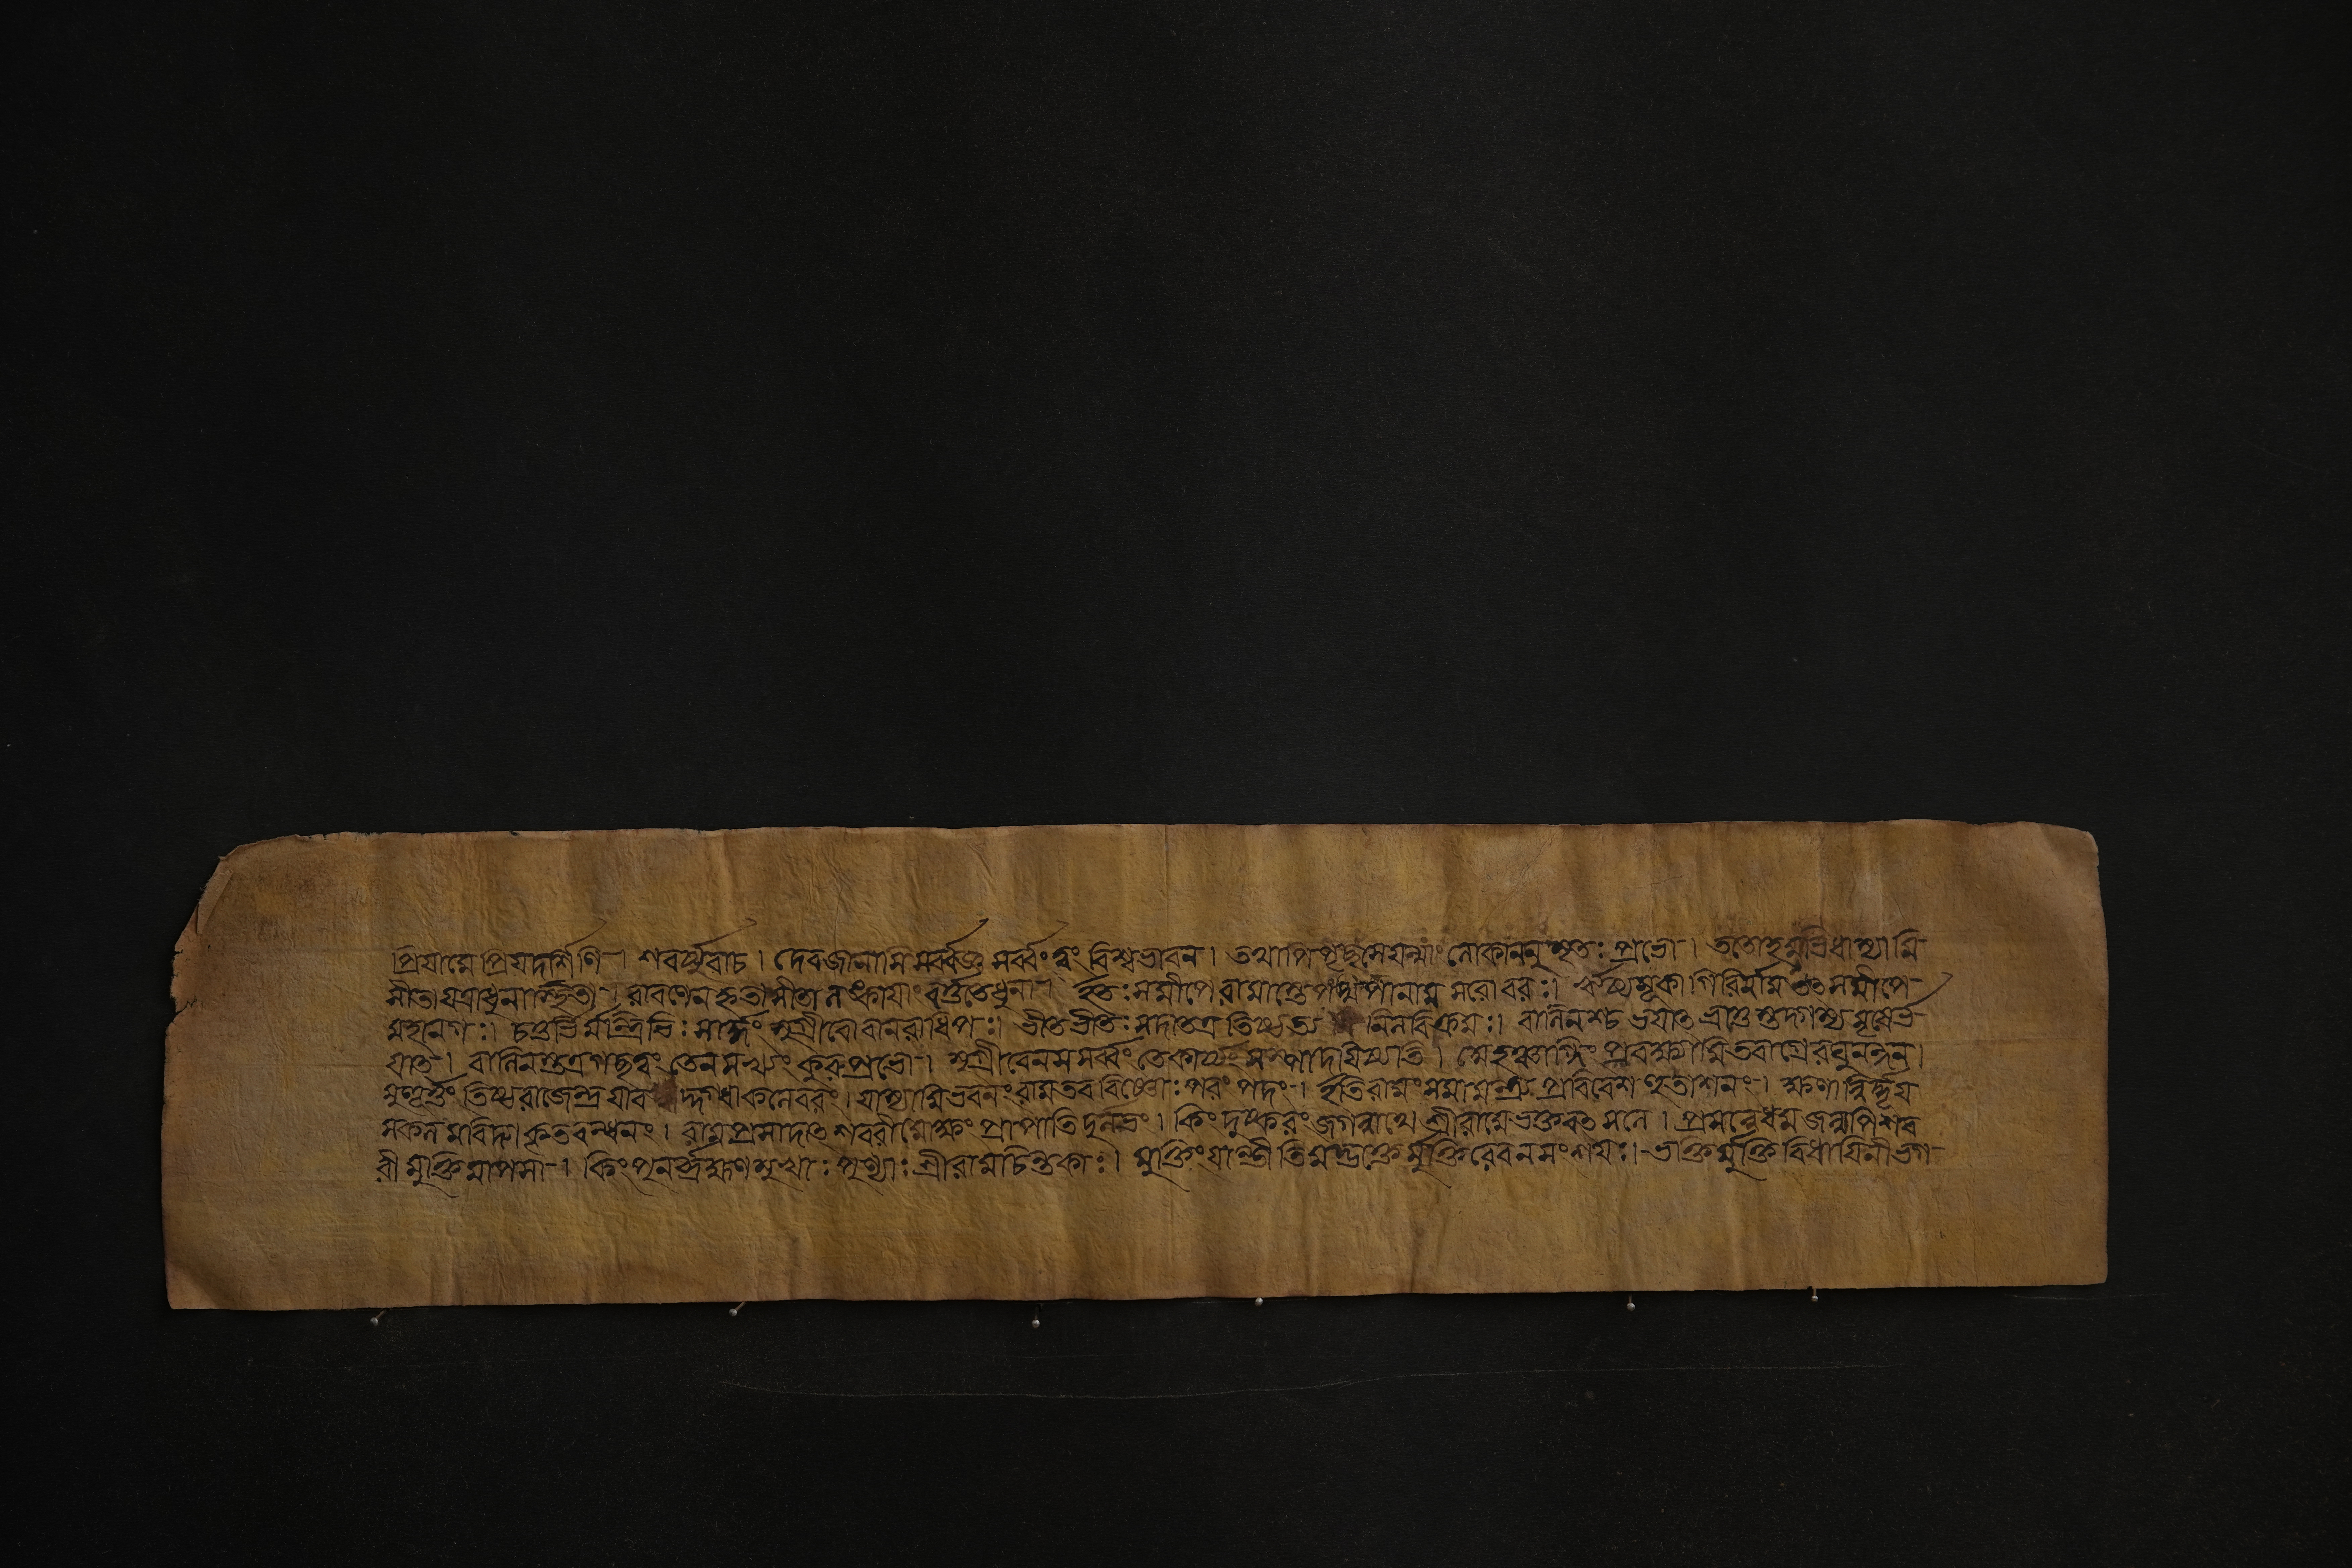 প্রিয়ামে প্রিয়দর্শিণি। শবর্য্যুবাচ। দেবজানাসি সর্ব্বজ্ঞ সর্ব্বং ত্বং বিশ্বভাবন। তথাপি পৃচ্ছসে যন্মাং লোকাননুসৃতঃ প্রভো। ততোহমভিধাস্যামি
সীতা যত্রাধুনাস্থিতা। রাবণেন হৃতাসীতা লঙ্কায়াং বর্ত্ততেধুনা। ইতঃ সমীপে রামাস্তে পম্পানাম সরোবরং। ঋষ্যমূকগিরির্নাম তৎ সমীপে
মহানগঃ। চতুর্ভির্মন্ত্রিভিঃ সার্দ্ধং সুগ্রীবো বানরাধিপঃ। ভীতভীতঃ সদাতত্র তিষ্ঠত্য বিক্রমঃ। বালিনশ্চ ভয়াৎ ভ্রাতুস্তদগম্য মৃষের্ভ
য়াৎ। বালিনস্তত্রগচ্ছত্বং তেন সখ্যং কুরুপ্রভো। সুগ্রীবেন সসর্ব্বং তেকার্য্যং সম্পাদয়িষ্যতি। অহমগ্নিং প্রবেক্ষ্যামি তবাগ্রে রঘুনন্দন।
মুহূর্ত্তং তিষ্ঠ রাজেন্দ্র যাব দ্দগ্ধা কলেবরং। যাস্যামি ভবনং রাম তব বিষ্ণোঃ পরং পদং। ইতি রামং সমামন্ত্র্য প্রবিবেশ হুতাশনং। ক্ষণান্নির্ধূয়
সকলমবিদ্যাকৃতবন্ধনং। রামপ্রসাদাৎ শবরীমোক্ষং প্রাপাতিদুর্লভং। কিং দুষ্করং জগন্নাথে শ্রীরামে ভক্তবৎসলে। প্রসন্নেধম জন্মাপি শব
রী মুক্তিমাপসা। কিং পুনর্ব্রাহ্মণমুখ্যাঃ পুণ্যাঃ শ্রীরামচিন্তকাঃ। মুক্তিং যান্তীতি মদ্ভক্তে র্মুক্তিরেবনসংশয়ঃ। ভক্তির্মুক্তি বিধায়িনী ভগ